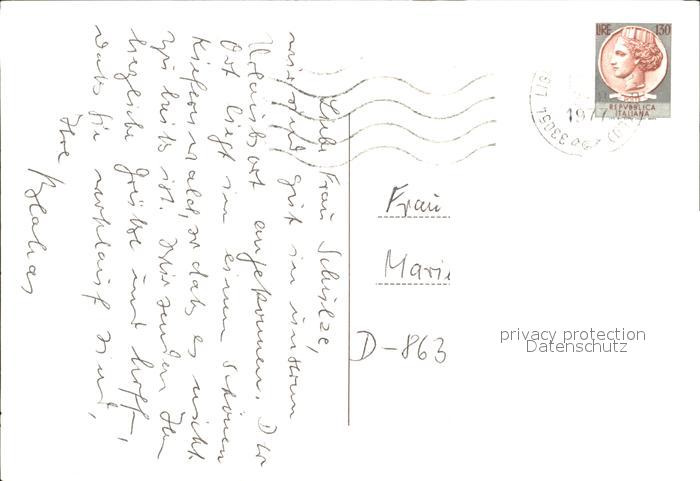 Liebe Frau Schulze,
wir sind gut in unserem
Urlaubsort angekommen. Der
Ort liegt in einem schönen
Kiefernwald, so daß es nicht
zu heiß ist. Wir senden Ihnen
herzliche Grüße und hoffen,
daß Sie wohlauf sind,
Ihre
Frau
Marie
D-863
LIRE 130
REPVBBLICA
ITALIANA
1977
33054
privacy protection
Datenschutz